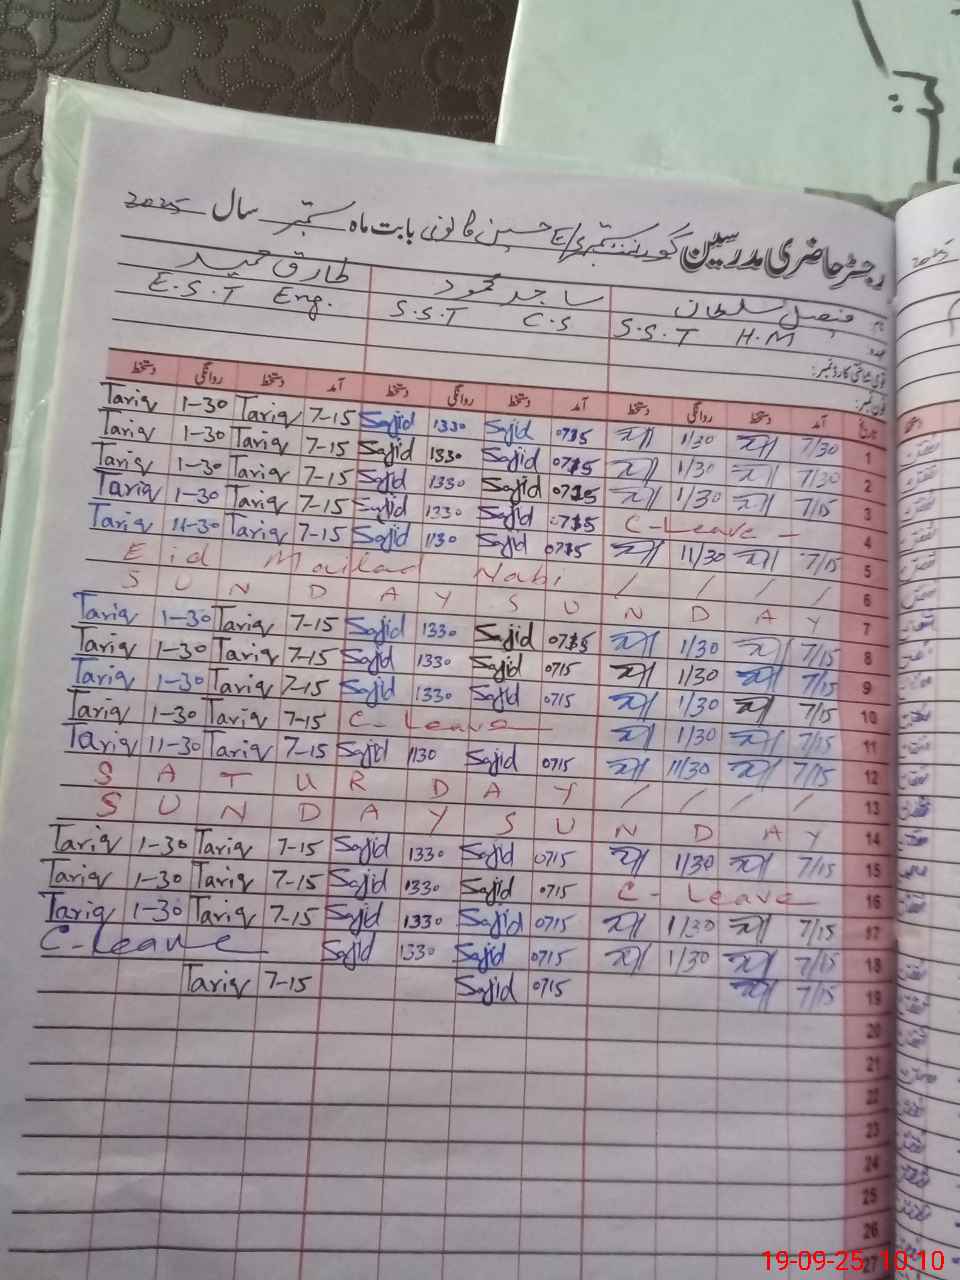 رجسٹر حاضری مدرسین گورنمنٹ حسین بابت ماہ ستمبر سال 2025
نام فیصل سلطان ساجد محمود طارق حمید
عہدہ S.S.T H.M S.S.T C.S E.S.T Eng.
قومی شناختی کارڈ نمبر:
فون نمبر:
تاریخ آمد دستخط روانگی دستخط آمد دستخط روانگی دستخط آمد دستخط روانگی دستخط
Tariq 1-30 Tariq 7-15 Sajid 1330 Sajid 0715 1/30 7/30 1
Tariq 1-30 Tariq 7-15 Sajid 1330 Sajid 0715 1/30 7/30 2
Tariq 1-30 Tariq 7-15 Sajid 1330 Sajid 0715 1/30 7/15 3
Tariq 1-30 Tariq 7-15 Sajid 1330 Sajid 0715 C-Leave - 4
Tariq 11-30 Tariq 7-15 Sajid 1130 Sajid 0715 11/30 7/15 5
Eid Mailad Nabi / / / / 6
S U N D A Y S U N D A Y 7
Tariq 1-30 Tariq 7-15 Sajid 1330 Sajid 0715 1/30 7/15 8
Tariq 1-30 Tariq 7-15 Sajid 1330 Sajid 0715 1/30 7/15 9
Tariq 1-30 Tariq 7-15 Sajid 1330 Sajid 0715 1/30 7/15 10
Tariq 1-30 Tariq 7-15 C-Leave 1/30 7/15 11
Tariq 11-30 Tariq 7-15 Sajid 1130 Sajid 0715 11/30 7/15 12
S A T U R D A Y / / / / 13
S U N D A Y S U N D A Y 14
Tariq 1-30 Tariq 7-15 Sajid 1330 Sajid 0715 1/30 7/15 15
Tariq 1-30 Tariq 7-15 Sajid 1330 Sajid 0715 C-Leave 16
Tariq 1-30 Tariq 7-15 Sajid 1330 Sajid 0715 1/30 7/15 17
C-Leave Sajid 1330 Sajid 0715 1/30 7/15 18
Tariq 7-15 Sajid 0715 7/15 19
20
21
22
23
24
25
26
27
19-09-25, 10:10